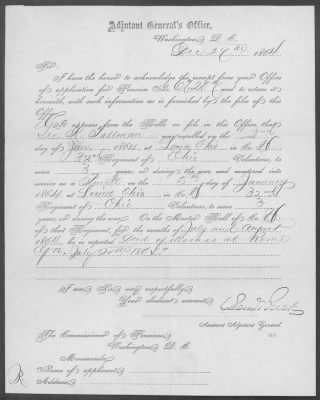 Adjutant General's Office,
Washington, D. C.
Dec 27th 1864
Sir:
I have the honor to acknowledge the receipt from your Office
of application for Pension No. and to return it
herewith, with such information as is furnished by the files of this
Office.
It appears from the Rolls on file in this Office, that
Geo. was enrolled on the 2nd
day of Jany, 1864, at Ohio in Co.
32nd Regiment of Ohio Volunteers, to
serve 3 years, or during the war, and mustered into
service as a on the day of January
1864, at Ohio in Co. 32nd
Regiment of Ohio Volunteers, to serve 3
years, or during the war. On the Muster Roll of Co.
of that Regiment, for the months of July and August
1864, he is reported Died of disease at Rome
Ga. July
I am, Sir, very respectfully,
Your obedient servant,
Assistant Adjutant General.
The Commissioner of Pensions,
Washington, D. C.
Memoranda:
Name of applicant
Address